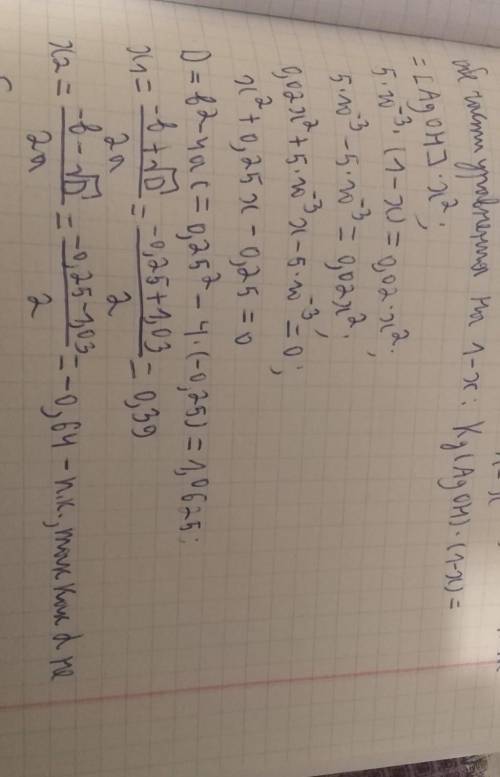 обе части уравнения на 1-x: Kд(AgOH)·(1-x)=
=[AgOH]·x²;
5·10⁻³·(1-x)=0,02·x²;
5·10⁻³-5·10⁻³=0,02x²;
0,02x²+5·10⁻³x-5·10⁻³=0;
x²+0,25x-0,25=0
D=b²-4ac=0,25²-4·(-0,25)=1,0625;
x1=(-b+√D)/2a=(-0,25+1,03)/2=0,39
x2=(-b-√D)/2a=(-0,25-1,03)/2=-0,64-п.к., так как α не